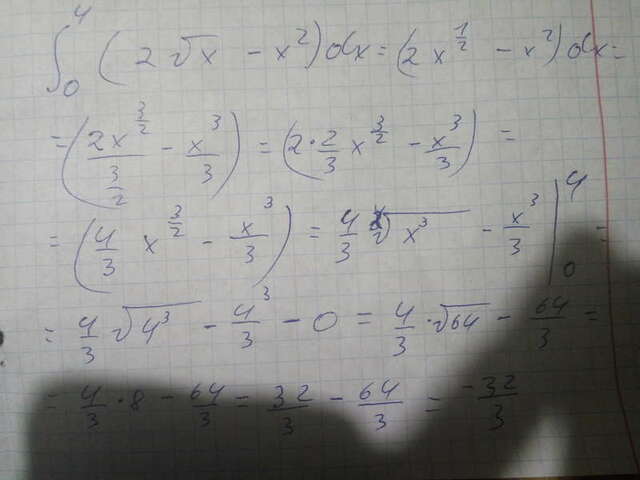 ∫₀⁴ (2√x − x²)dx = (2x^(1/2) − x²)dx =
= (2x^(3/2)/(3/2) − x³/3) = (2·2/3 x^(3/2) − x³/3) =
= (4/3 x^(3/2) − x³/3) = 4/3 √x³ − x³/3 |₀⁴ =
= 4/3 √4³ − 4³/3 − 0 = 4/3 · √64 − 64/3 =
= 4/3 · 8 − 64/3 = 32/3 − 64/3 = −32/3